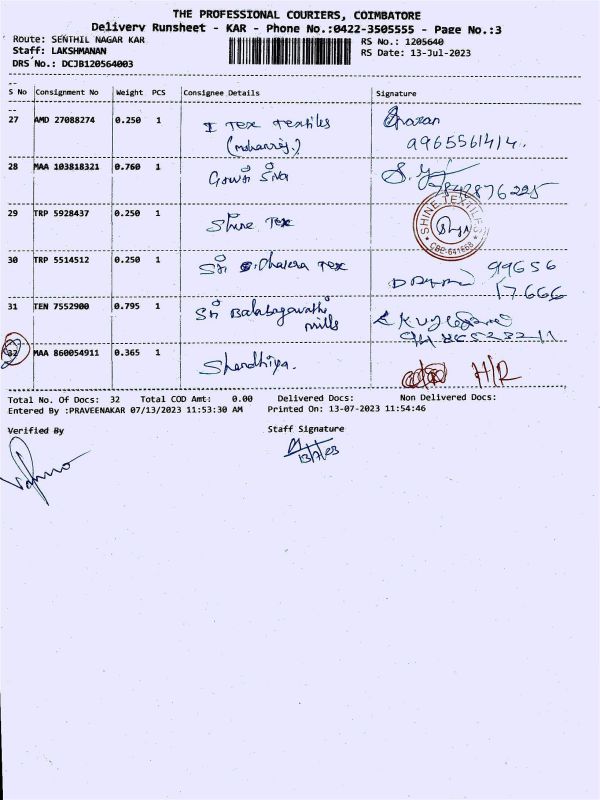 THE PROFESSIONAL COURIERS, COIMBATORE
Delivery Runsheet - KAR - Phone No.:0422-3505555 - Page No.:3
Route: SENTHIL NAGAR KAR
RS No.: 1205640
Staff: LAKSHMANAN
RS Date: 13-Jul-2023
DRS No.: DCJB120564003
S No Consignment No Weight PCS Consignee Details Signature
27 AMD 27088274 0.250 1 I Tex Textiles
(Mohanraj.)
9965561414.
28 MAA 103818321 0.760 1 Gowri Siva
9842876225
29 TRP 5928437 0.250 1 Shine Tex
SHINE TEXTILES
CBE-641668
30 TRP 5514512 0.250 1 Sri Dhakera Tex
99656
17666
31 TEN 7552900 0.795 1 Sri Balabagavathi
mills
32 MAA 860054911 0.365 1 Shandhiya. H/R
Total No. Of Docs: 32 Total COD Amt: 0.00 Delivered Docs: Non Delivered Docs:
Entered By :PRAVEENAKAR 07/13/2023 11:53:30 AM Printed On: 13-07-2023 11:54:46
Verified By Staff Signature
13/7/23